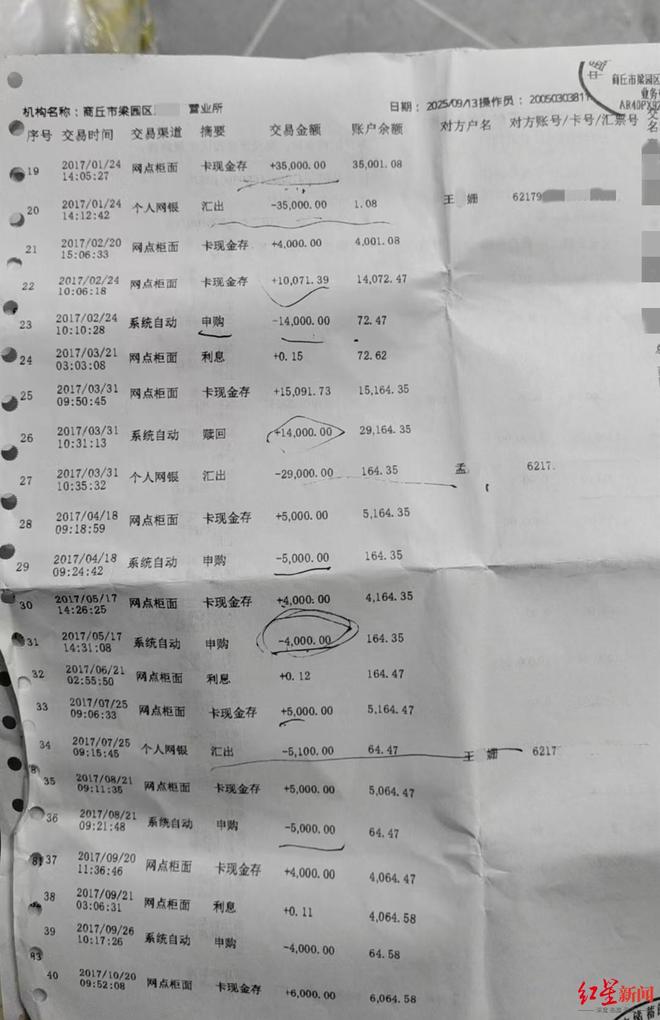 商丘市梁园区
业务
机构名称：商丘市梁园区 营业所 日期：2025/09/13 操作员：2005030381
序号 交易时间 交易渠道 摘要 交易金额 账户余额 对方户名 对方账号/卡号/汇票号
19 2017/01/24 14:05:27 网点柜面 卡现金存 +35,000.00 35,001.08
20 2017/01/24 14:12:42 个人网银 汇出 -35,000.00 1.08 王 姗 62179
21 2017/02/20 15:06:33 网点柜面 卡现金存 +4,000.00 4,001.08
22 2017/02/24 10:06:18 网点柜面 卡现金存 +10,071.39 14,072.47
23 2017/02/24 10:10:28 系统自动 申购 -14,000.00 72.47
24 2017/03/21 03:03:08 网点柜面 利息 +0.15 72.62
25 2017/03/31 09:50:45 网点柜面 卡现金存 +15,091.73 15,164.35
26 2017/03/31 10:31:13 系统自动 赎回 +14,000.00 29,164.35
27 2017/03/31 10:35:32 个人网银 汇出 -29,000.00 164.35 孟 6217.
28 2017/04/18 09:18:59 网点柜面 卡现金存 +5,000.00 5,164.35
29 2017/04/18 09:24:42 系统自动 申购 -5,000.00 164.35
30 2017/05/17 14:26:25 网点柜面 卡现金存 +4,000.00 4,164.35
31 2017/05/17 14:31:08 系统自动 申购 -4,000.00 164.35
32 2017/06/21 02:55:50 网点柜面 利息 +0.12 164.47
33 2017/07/25 09:06:33 网点柜面 卡现金存 +5,000.00 5,164.47
34 2017/07/25 09:15:45 个人网银 汇出 -5,100.00 64.47 王 姗 6217
35 2017/08/21 09:11:35 网点柜面 卡现金存 +5,000.00 5,064.47
36 2017/08/21 09:21:48 系统自动 申购 -5,000.00 64.47
37 2017/09/20 11:36:46 网点柜面 卡现金存 +4,000.00 4,064.47
38 2017/09/21 03:06:31 网点柜面 利息 +0.11 4,064.58
39 2017/09/26 10:17:26 系统自动 申购 -4,000.00 64.58
40 2017/10/20 09:52:08 网点柜面 卡现金存 +6,000.00 6,064.58
红星新闻